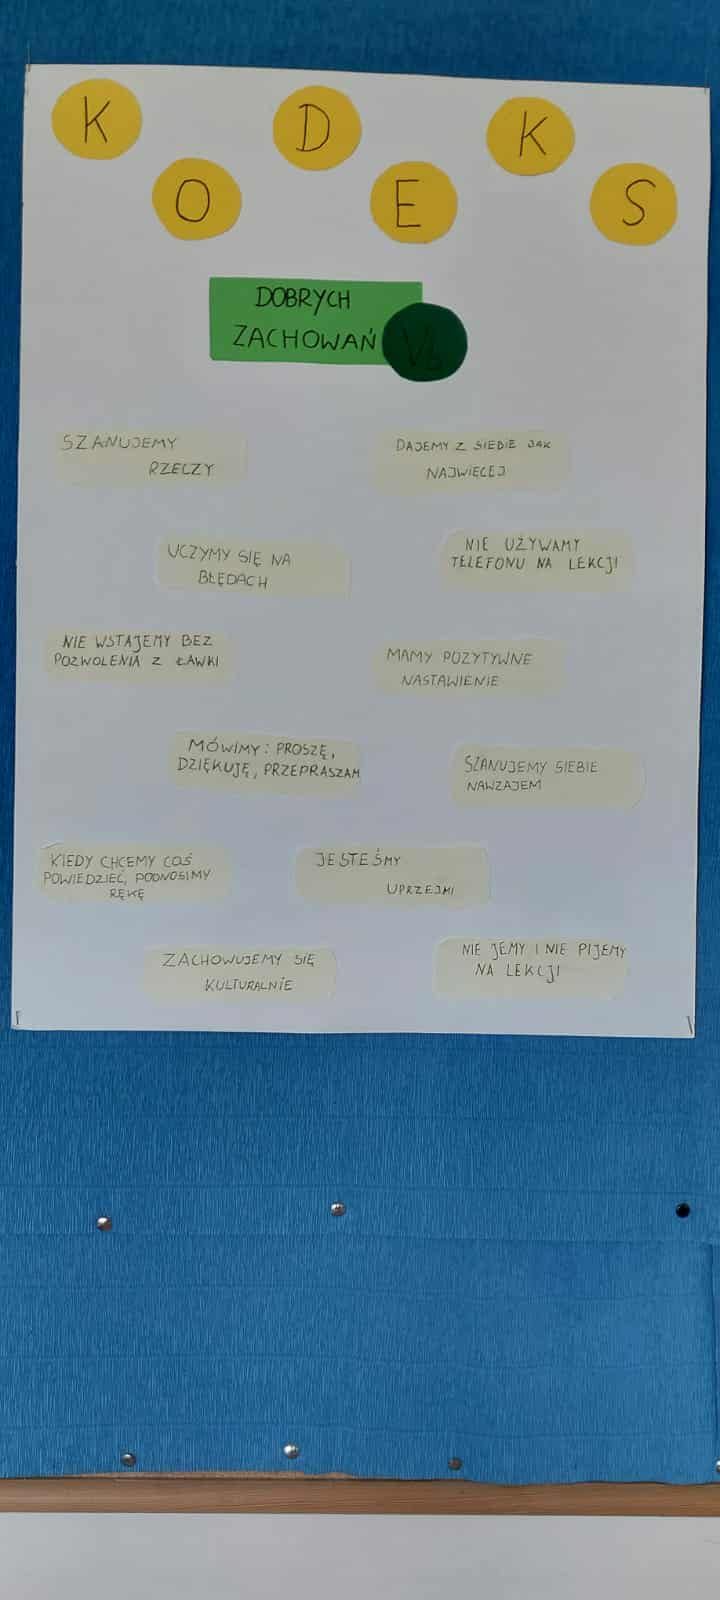 KODEKS
DOBRYCH
ZACHOWAŃ
Vb
SZANUJEMY
RZECZY
DAJEMY Z SIEBIE JAK
NAJWIĘCEJ
UCZYMY SIĘ NA
BŁĘDACH
NIE UŻYWAMY
TELEFONU NA LEKCJI
NIE WSTAJEMY BEZ
POZWOLENIA Z ŁAWKI
MAMY POZYTYWNE
NASTAWIENIE
MÓWIMY: PROSZĘ,
DZIĘKUJĘ, PRZEPRASZAM
SZANUJEMY SIEBIE
NAWZAJEM
KIEDY CHCEMY COŚ
POWIEDZIEĆ, PODNOSIMY
RĘKĘ
JESTEŚMY
UPRZEJMI
ZACHOWUJEMY SIĘ
KULTURALNIE
NIE JEMY I NIE PIJEMY
NA LEKCJI